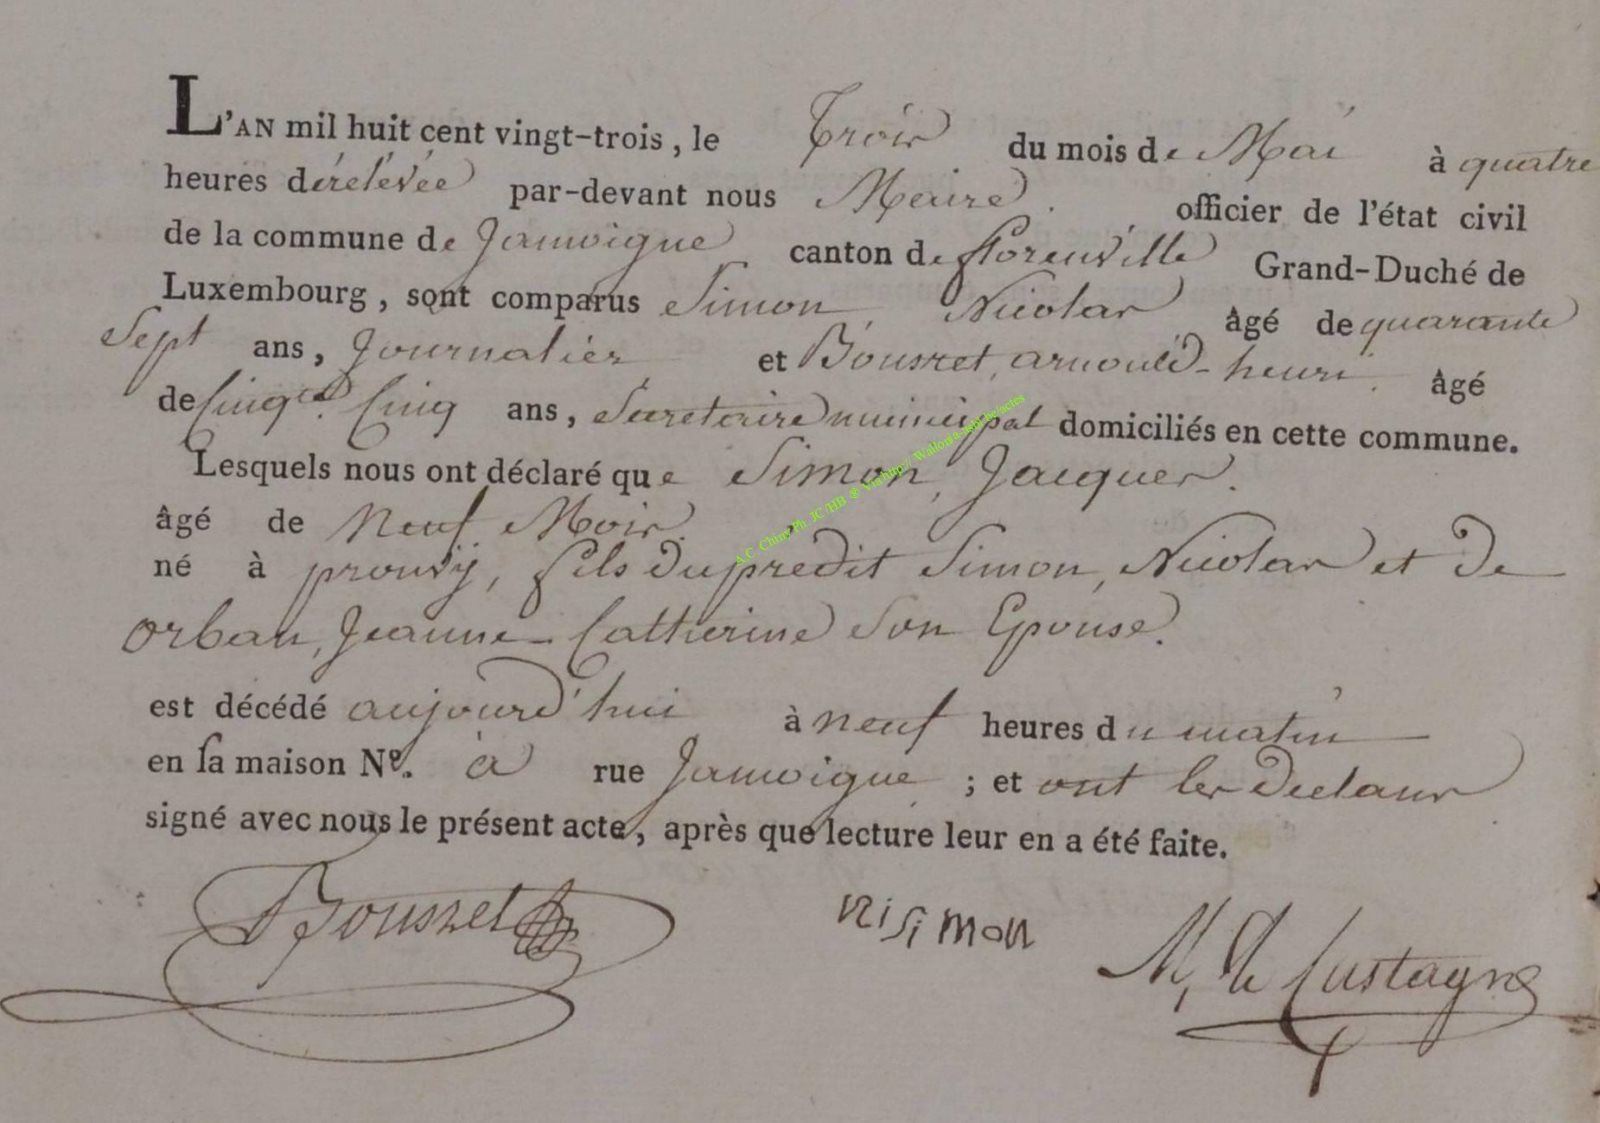 L'AN mil huit cent vingt-trois, le Trois du mois de Mai à quatre
heures dérélévée par-devant nous Maire. officier de l'état civil
de la commune de Jamoigne canton de florenville Grand-Duché de
Luxembourg, sont comparus Simon Nicolas âgé de quarante
Sept ans, Journalier et Bousret, arnould-henri. âgé
de Cinq Cinq ans, Secretaire municipal domiciliés en cette commune.
Lesquels nous ont déclaré que Simon, Jacques.
âgé de Neuf Mois.
né à prouvy, fils du prédit Simon, Nicolas et de
Orban, Jeanne-Catherine Son Epouse.
est décédé aujourd'hui à neuf heures du matin
en sa maison Nº. à rue Jamoigne ; et ont les declans
signé avec nous le présent acte, après que lecture leur en a été faite.
Bousret ni simon M, de Custagne
A.C. Chiny Ph. JC /HB ® Via http:// Wallonia-asbl.be/actes